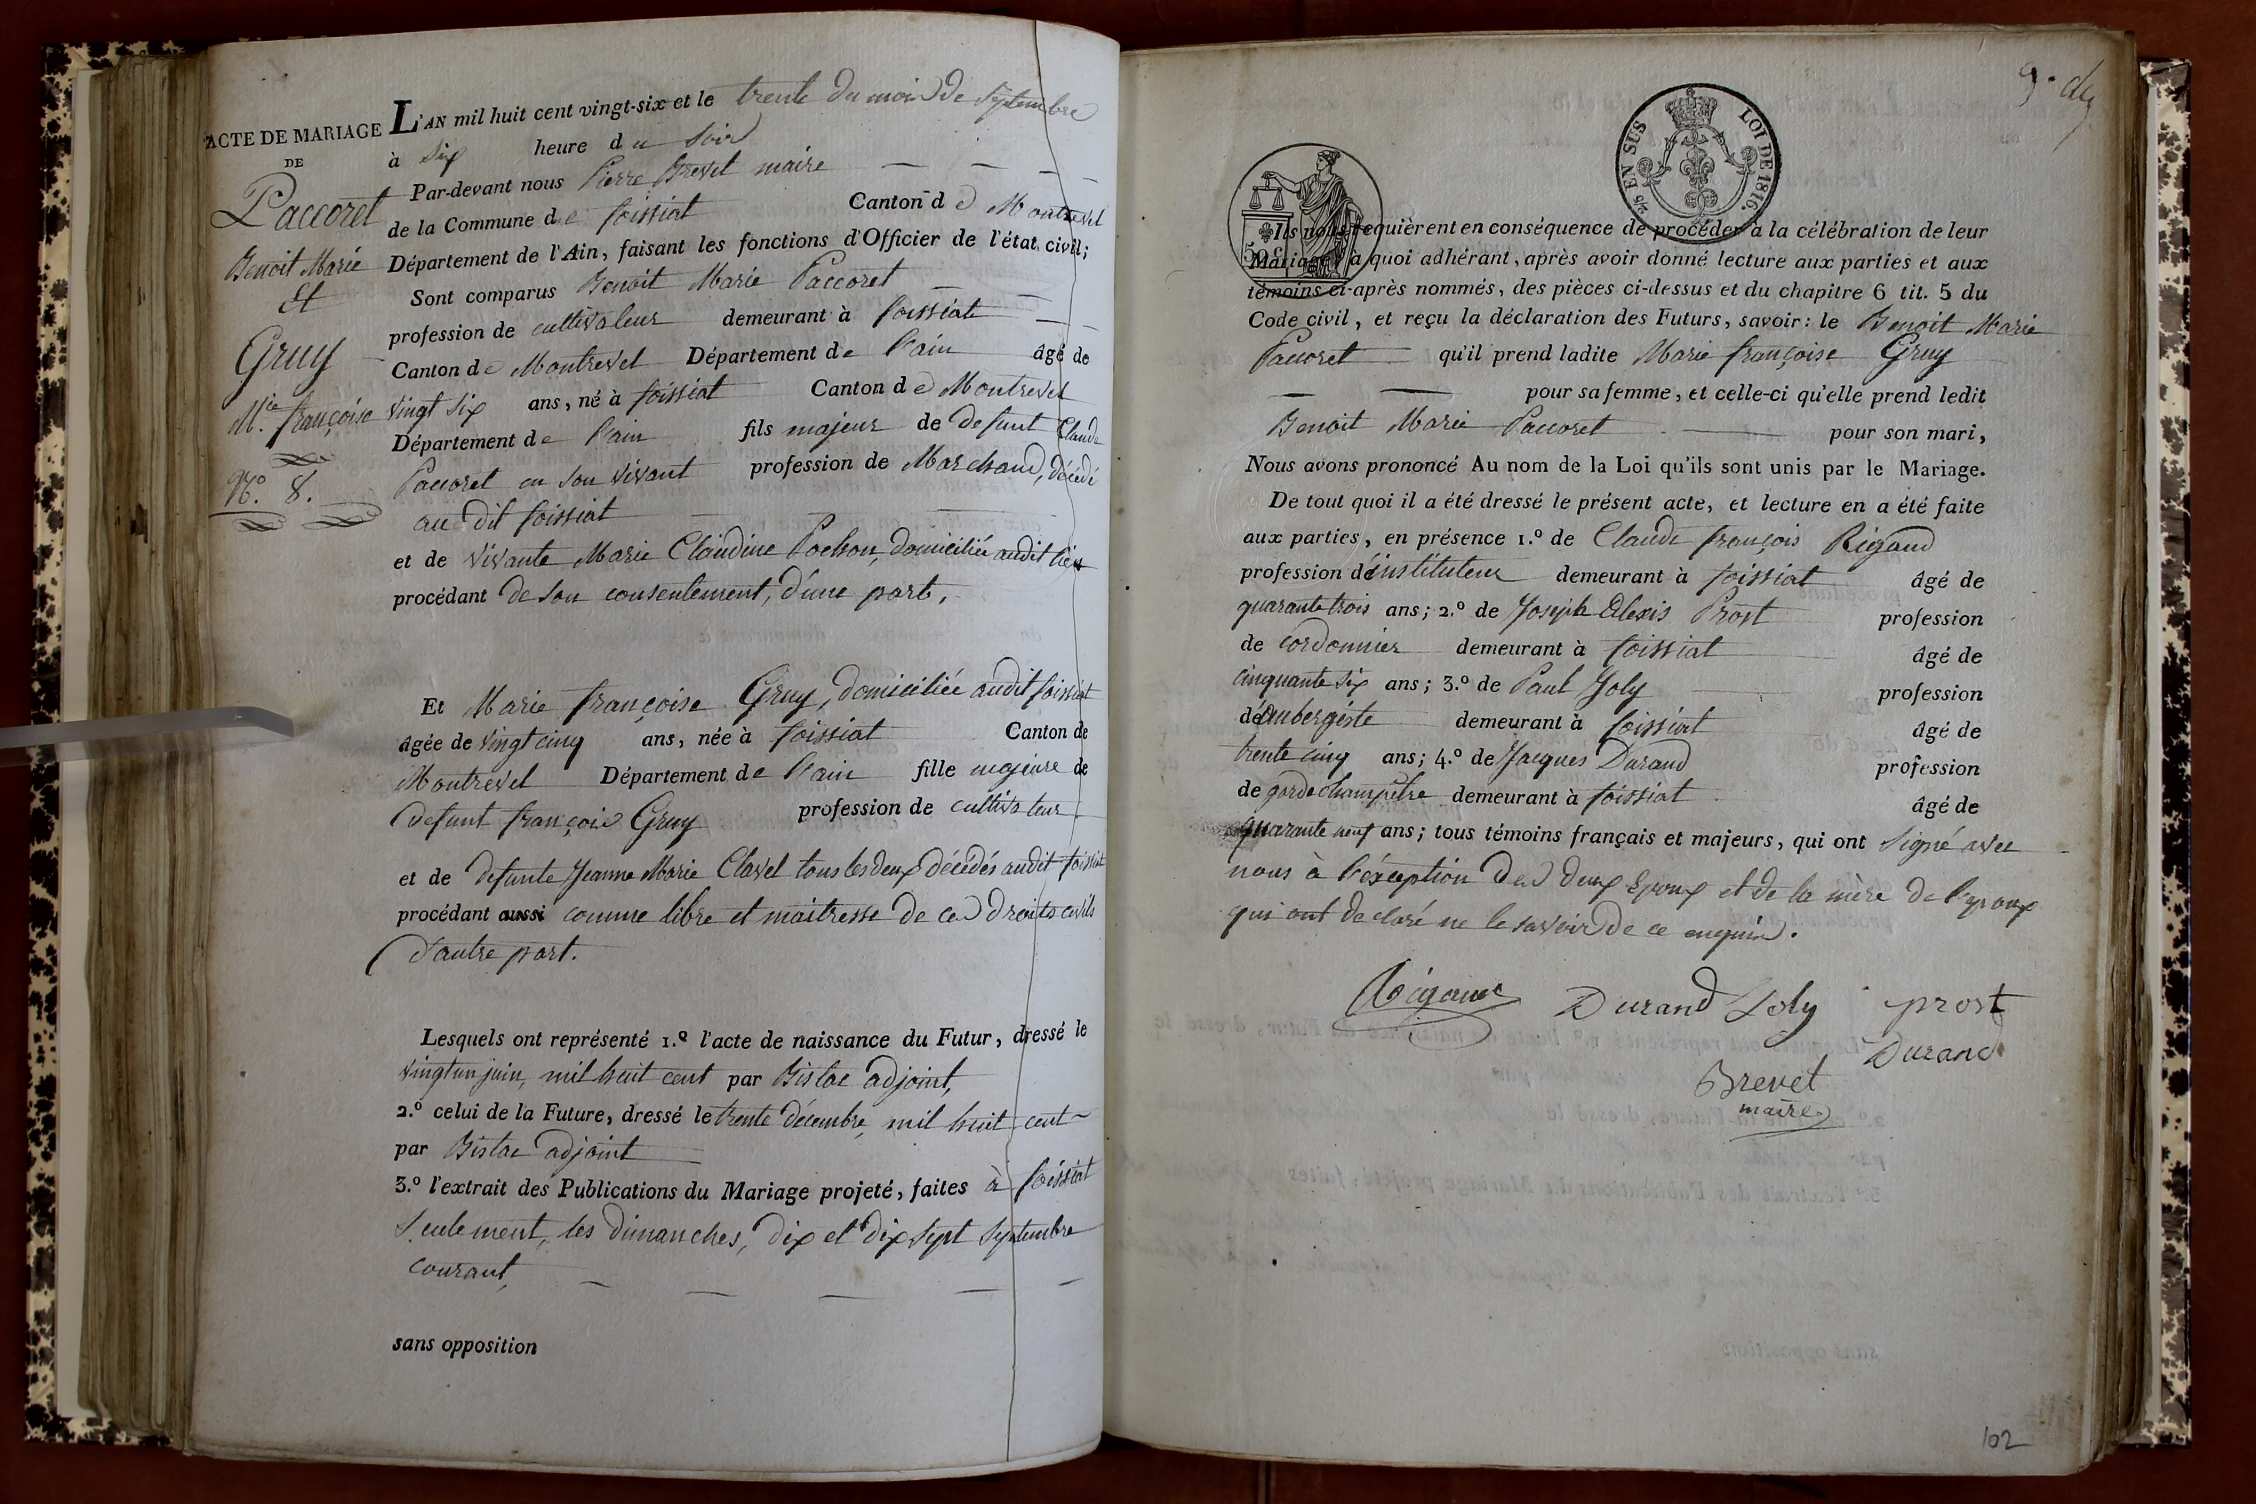 ACTE DE MARIAGE
DE
Paccoret
Benoit Marie
Et
Gruy
M.ie françoise
N.o 8.
L'AN mil huit cent vingt-six et le trente du mois de Septembre
à Six heure du Soir
Par-devant nous Pierre Brevet maire
de la Commune de foissiat Canton de Montrevel
Département de l'Ain, faisant les fonctions d'Officier de l'état civil;
Sont comparus Benoit Marie Paccoret
profession de cultivateur demeurant à foissiat
Canton de Montrevel Département de l'ain âgé de
vingt six ans, né à foissiat Canton de Montrevel
Département de l'ain fils majeur de defunt Claude
Paccoret en son vivant profession de Marchand, décédé
au dit foissiat
et de vivante Marie Claudine Pochon, domiciliée audit lieu
procédant de son consentement, d'une part,
Et Marie françoise Gruy, domiciliée audit foissiat
âgée de vingt cinq ans, née à foissiat Canton de
Montrevel Département de l'ain fille majeure de
defunt françois Gruy profession de cultivateur
et de defunte Jeanne Marie Clavel tous les deux décédés audit foissiat
procédant aussi comme libre et maitresse de ces droits civils
d'autre part.
Lesquels ont représenté 1.o l'acte de naissance du Futur, dressé le
vingt un juin, mil huit cent par Bislac adjoint,
2.o celui de la Future, dressé le trente décembre, mil huit cent
par Bislac adjoint
3.o l'extrait des Publications du Mariage projeté, faites à foissiat
Seulement, les dimanches, dix et dix sept Septembre
courant,
sans opposition
2/5 EN SUS LOI DE 1816.
50 c
Ils nous requièrent en conséquence de procéder à la célébration de leur
Mariage; à quoi adhérant, après avoir donné lecture aux parties et aux
témoins ci-après nommés, des pièces ci-dessus et du chapitre 6 tit. 5 du
Code civil, et reçu la déclaration des Futurs, savoir: le Benoit Marie
Paccoret qu'il prend ladite Marie françoise Gruy
pour sa femme, et celle-ci qu'elle prend ledit
Benoit Marie Paccoret pour son mari,
Nous avons prononcé Au nom de la Loi qu'ils sont unis par le Mariage.
De tout quoi il a été dressé le présent acte, et lecture en a été faite
aux parties, en présence 1.o de Claude françois Rigaud
profession d'instituteur demeurant à foissiat âgé de
quarante trois ans; 2.o de Joseph Alexis Prost profession
de cordonnier demeurant à foissiat âgé de
cinquante six ans; 3.o de Paul Joly profession
d'aubergiste demeurant à foissiat âgé de
trente cinq ans; 4.o de Jacques Durand profession
de garde champêtre demeurant à foissiat âgé de
quarante neuf ans; tous témoins français et majeurs, qui ont Signé avec
nous à l'éxception des deux Epoux et de la mère de l'epoux
qui ont declaré ne le savoir de ce enquis.
Rigaud Durand Joly prost
Durand
Brevet
maire
102